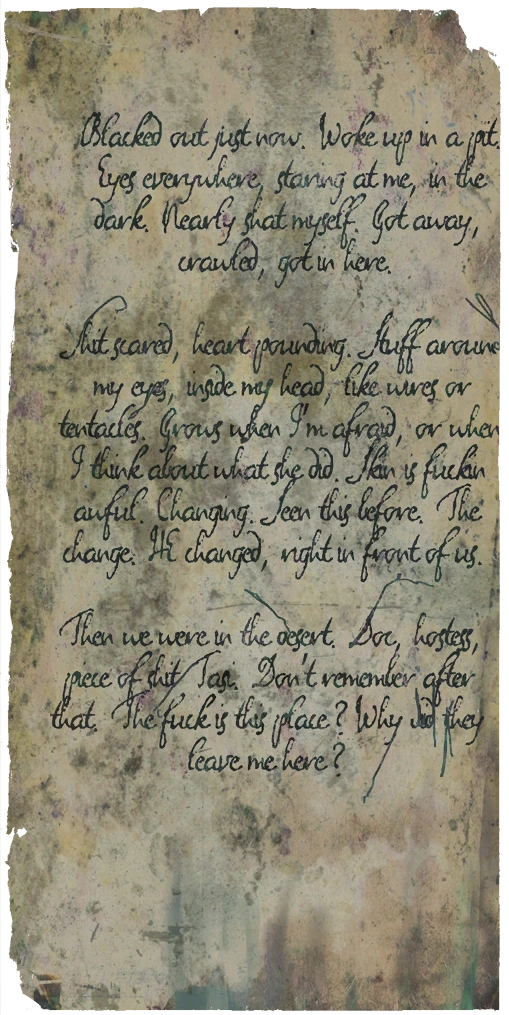 Blacked out just now. Woke up in a pit.
Eyes everywhere, staring at me, in the
dark. Nearly shat myself. Got away,
crawled, got in here.
Shit scared, heart pounding. Stuff around
my eyes, inside my head, like wires or
tentacles. Grows when I'm afraid, or when
I think about what she did. Skin is fuckin
awful. Changing. Seen this before. The
change. He changed, right in front of us.
Then we were in the desert. Doc, hostess,
piece of shit Tasi. Don't remember after
that. The fuck is this place? Why did they
leave me here?